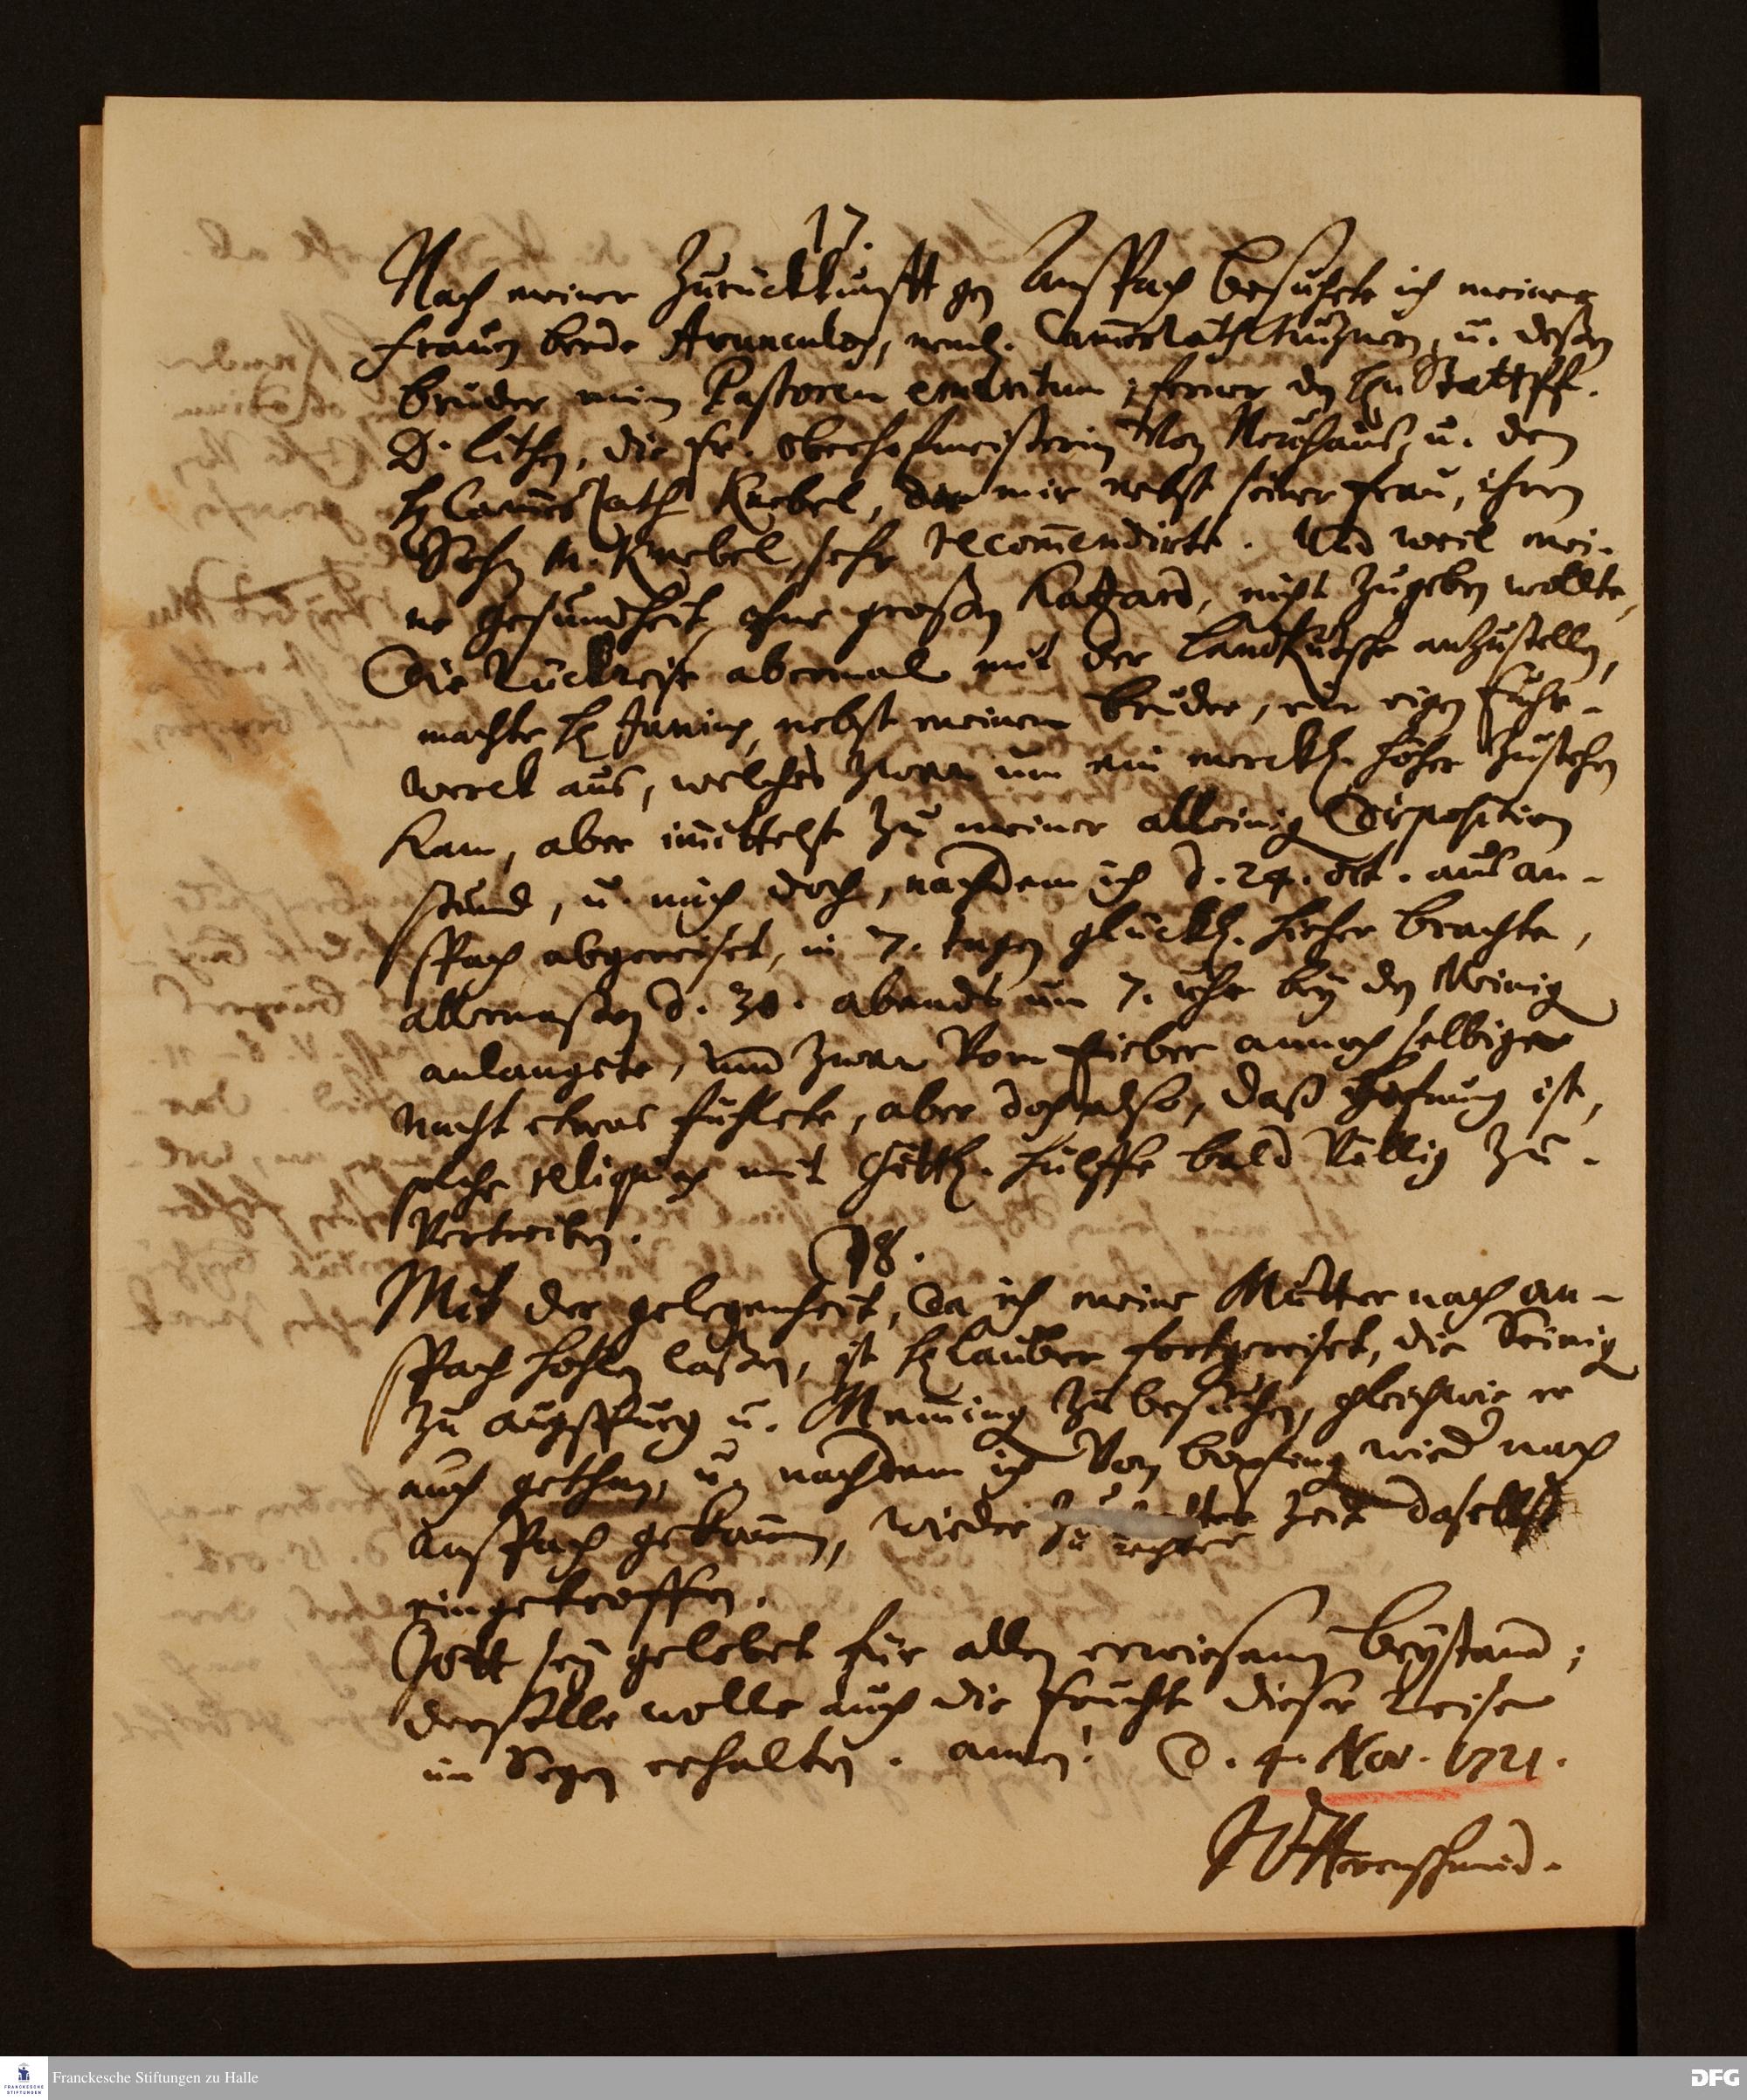 17.
Nach meiner Zurückkunfft gen Anspach besuchte ich meiner
Frauen beede Avunculos, neml. Cam̅errath u. deßen
bruder einen Pastorem emeritum, ferner den Hn Stattpf.
D. Lithen, die Fr. Oberhofmeisterin von Neuhauß, u. den
H Cam̅errath Knebel, der mir nebst seiner Frau, ihren
Sohn M. Knebel, sehr recom̅endirte. Und weil mei-
ne gesundheit, ohne großen Hazard, nicht zugeben wollte,
die Rückreise abermal mit der Landkutsche anzustellen,
machte H Junius, nebst meinem bruder, ein eigen Fuhr-
werck aus, welches zwar um ein merckl. höher zustehen
kam, aber im̅ittelst zu meiner alleinig Disposition
stund, u. mich doch, nachdem ich d. 24. Oct. aus an-
spach abgereiset, in 7. tagen glückl. hieher brachte,
allermaßen d. 30. abends um 7. uhr bey den Meinig
anlangete, und zwar vom Fieber annoch selbige
nacht etwas fühlete, aber doch also, daß Hofnung ist,
solche reliquias mit Göttl. hülffe bald völlig zu
vertreiben.
18.
Mit der gelegenheit, da ich meine Mutter nach an-
spach hohlen laßen, ist H Lauber fortgereiset, die Seinig
zu augspurg u. Mem̅ing zu besuchen, gleichwie er
auch gethan, u. nachdem ich von bopfing wied nach
anspach gekom̅en, wieder zu rechter Zeit daselbst
eingetroffen.
Gott sey gelobet für allen erwiesenen beystand;
derselbe wolle auch die frucht dieser Reise
im Segen erhalten. amen! D. 4. Nov. 1721.
JDHerrnschmid.
Franckesche Stiftungen zu Halle
FRANCKESCHE
STIFTUNGEN
DFG